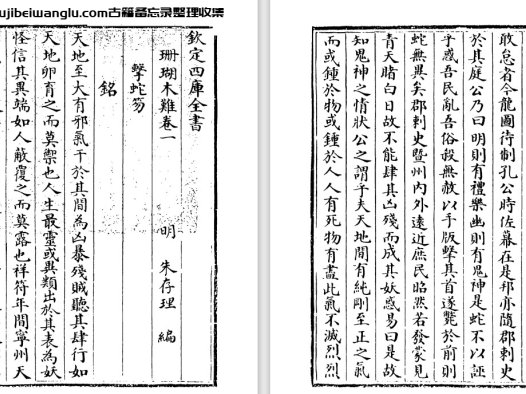 ujibeiwanglu.com古籍备忘录整理收集
欽定四庫全書
珊瑚木難卷一 明 朱存理 編
擊蛇笏
銘
天地至大有邪氣干於其間為凶暴殘賊聽其肆行如
天地卵育之而莫禦也人生最靈或異類出於其表為妖
怪信其異端如人蔽覆之而莫露也祥符年間寧州天
敢怠者今龍圖待制孔公時佐幕在是邦亦隨郡刺史
於其庭公乃曰明則有禮樂幽則有鬼神是蛇不以誣
乎惑吾民亂吾俗殺無赦以手版擊其首遂斃於前則
蛇無異矣郡刺史暨州內外遠近庶民昭然若發蒙見
青天睹白日故不能肆其凶殘而成其妖惑易曰是故
知鬼神之情狀公之謂乎夫天地間有純剛至正之氣
而或鍾於物或鍾於人人有死物有盡此氣不滅烈烈